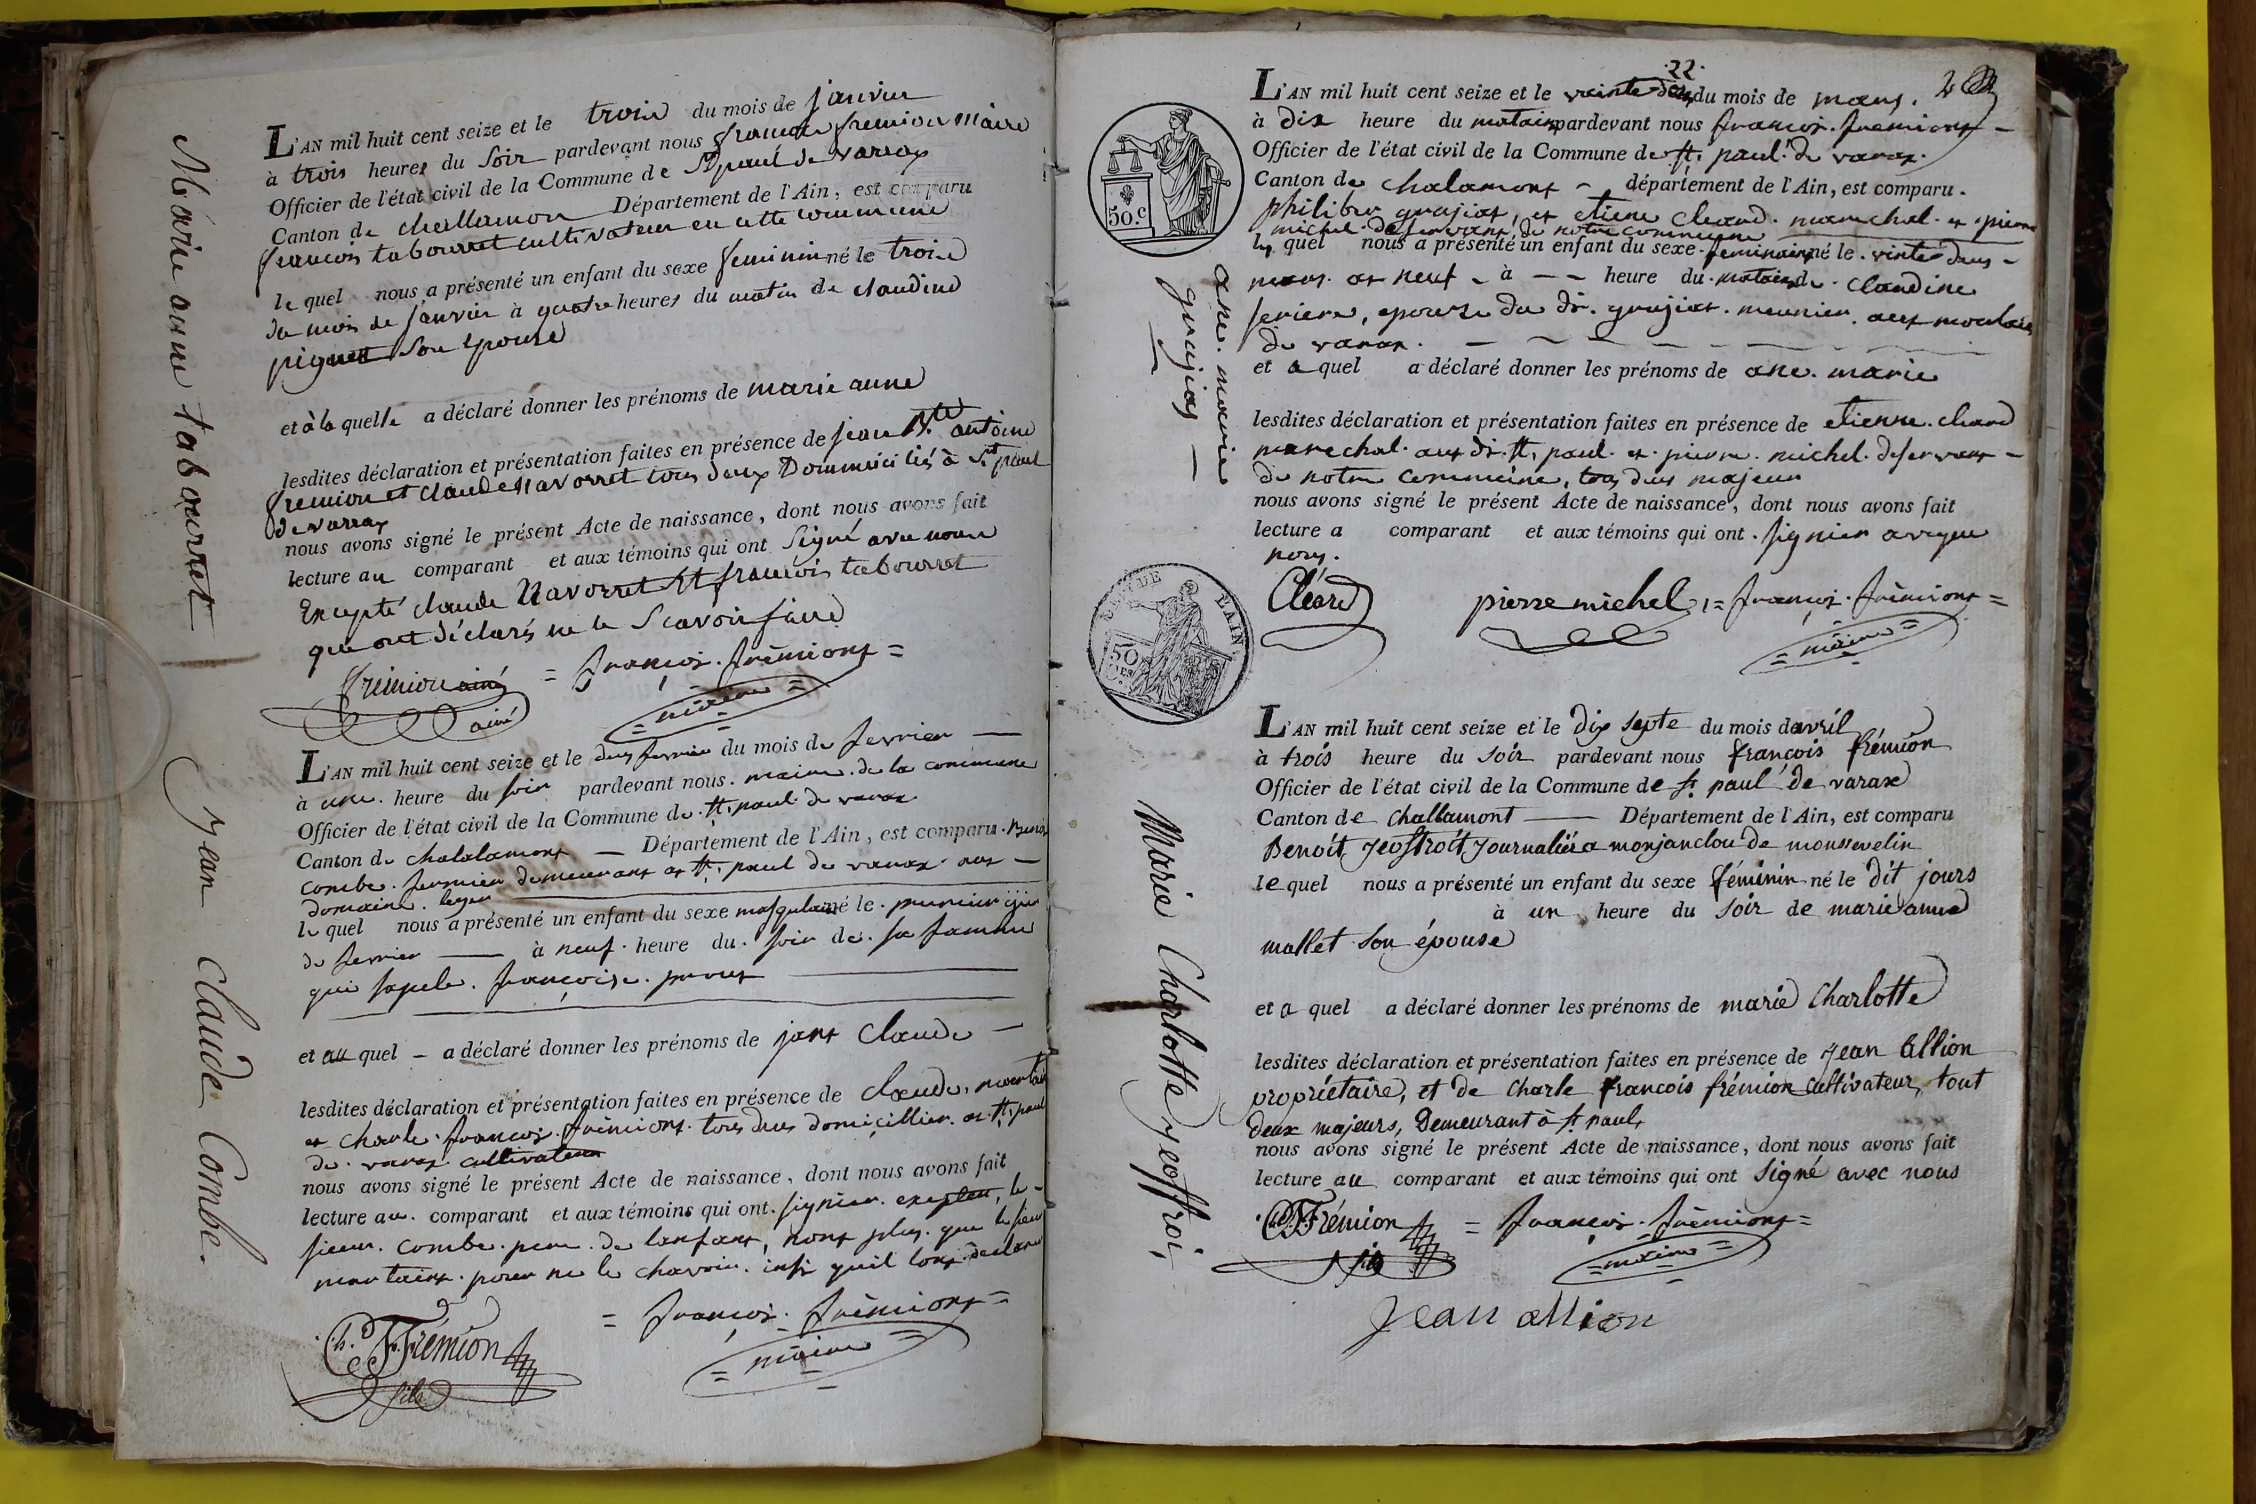 Marie anne tabourret
L'AN mil huit cent seize et le troix du mois de janvier
à trois heures du Soir pardevant nous francois fremion Maire
Officier de l'état civil de la Commune de St paul de varrax
Canton de challamon Département de l'Ain, est comparu
francois tabourret cultivateur en cette commune
le quel nous a présenté un enfant du sexe feminin né le troix
du mois de janvier à quatre heures du matin de claudine
piguet son epouse
et à la quelle a déclaré donner les prénoms de marie anne
lesdites déclaration et présentation faites en présence de jean Bte antoine
fremion et claude Navorret tous deux Dommiciliés à St paul
de varrax
nous avons signé le présent Acte de naissance, dont nous avons fait
lecture au comparant et aux témoins qui ont Signé avec nous
Excepté claude Navorret Et francois tabourret
qui ont déclarés ne le Scavoir faire
fremion ainé
ainé
= françois. frèmiont =
= maire =
jean Claude Combe.
L'AN mil huit cent seize et le deus fevrier du mois de fevrier
à une. heure du soir pardevant nous. maire. de la commune
Officier de l'état civil de la Commune de. st. paul. de varax
Canton de chalalamont Département de l'Ain, est comparu.
combe. fermier demeurant at st. paul de varax aus
domaine.
le quel nous a présenté un enfant du sexe masqulain né le. premier
de fevrier à neuf. heure du. soir de. sa famme
qui sapele. françoise. pruet
et au quel - a déclaré donner les prénoms de jant Claude
lesdites déclaration et présentation faites en présence de claude. montaint
et charle. françois. frèmiont. tous deus domicillier. at. st. paul
de. varax. cultivateur
nous avons signé le présent Acte de naissance, dont nous avons fait
lecture au. comparant et aux témoins qui ont. signier. exepteu, le
sieur. combe. pere. de lanfant, nont plus. que le sieur
montaint. pour ne le chavoir. insi quil lont déclaré
Ch. F. Frémion
fils
= françois. frèmiont =
= maire =
22.
L'AN mil huit cent seize et le veinte deus du mois de mars.
à dix heure du matain pardevant nous françois. frèmiont
Officier de l'état civil de la Commune de st. paul. de varax.
Canton de chalamont département de l'Ain, est comparu.
philiber grujiat, et etiene cleard. marechal. et. pierre
michel. deservant, de notre commune
le quel nous a présenté un enfant du sexe. feminain né le. vinte deus
mars. at neuf - à - - heure du. matain de. claudine
feriere, epouse du dt. grujiat. meunier. aus moulain
de varax.
et a quel a déclaré donner les prénoms de ane. marie
lesdites déclaration et présentation faites en présence de etienne. cleard
marechal. aus dt. st. paul. et. pierre. michel. deservant
de notre commune, tous deus majeur
nous avons signé le présent Acte de naissance, dont nous avons fait
lecture a comparant et aux témoins qui ont. signier aveque
nous.
Cléard
pierre michel
= françois. frèmiont =
= maire =
50.c
ane. marie
grujiat
LAIN
50
L'AN mil huit cent seize et le dix septe du mois davril
à trois heure du soir pardevant nous françois frémion
Officier de l'état civil de la Commune de st. paul de varax
Canton de challamont Département de l'Ain, est comparu
Benoit jeoffroit journalié a monjanclou de moussevelin
le quel nous a présenté un enfant du sexe féminin né le dit jours
à un heure du soir de marie anne
mallet son épouse
et a quel a déclaré donner les prénoms de marie Charlotte
lesdites déclaration et présentation faites en présence de jean Allion
propriétaire, et de Charle françois frémion cultivateur, tout
deux majeurs, Demeurant à st. paul,
nous avons signé le présent Acte de naissance, dont nous avons fait
lecture au comparant et aux témoins qui ont signé avec nous
Frémion
fils
= françois. frèmiont =
= maire =
jean allion
Marie Charlotte jeoffroi